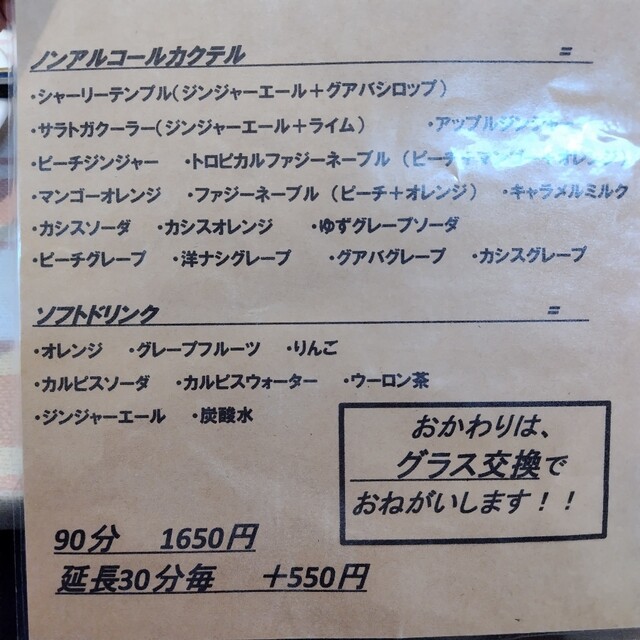 ノンアルコールカクテル =
・シャーリーテンプル（ジンジャーエール＋グアバシロップ）
・サラトガクーラー（ジンジャーエール＋ライム） ・アップルジンジャー
・ピーチジンジャー ・トロピカルファジーネーブル（ピーチ＋マンゴー＋オレンジ）
・マンゴーオレンジ ・ファジーネーブル（ピーチ＋オレンジ） ・キャラメルミルク
・カシスソーダ ・カシスオレンジ ・ゆずグレープソーダ
・ピーチグレープ ・洋ナシグレープ ・グアバグレープ ・カシスグレープ
ソフトドリンク =
・オレンジ ・グレープフルーツ ・りんご
・カルピスソーダ ・カルピスウォーター ・ウーロン茶
・ジンジャーエール ・炭酸水
おかわりは、
グラス交換で
おねがいします！！
90分 1650円
延長30分毎 ＋550円